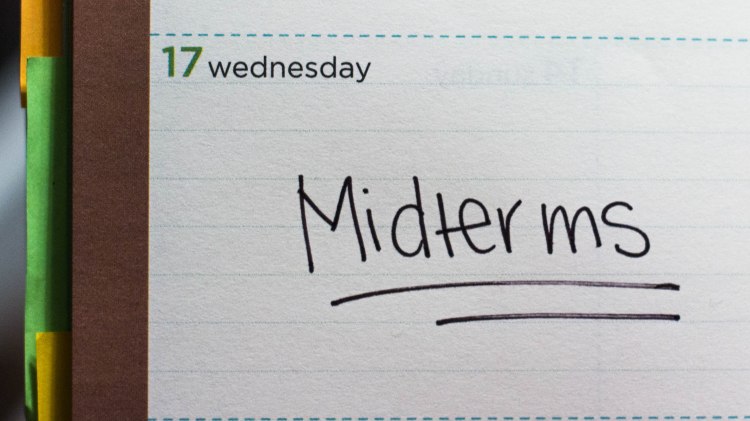 17 wednesday
Midterms